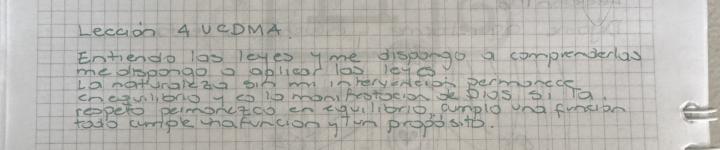 Lección 4 UCDMA.
Entiendo las leyes y me dispongo a comprenderlas
me dispongo a aplicar las leyes
La naturaleza sin mi intervención permanece
en equilibrio y es la manifestacion de Dios si la
respeto permanezco en equilibrio, cumplo una funcion
todo cumple una funcion y un proposito.